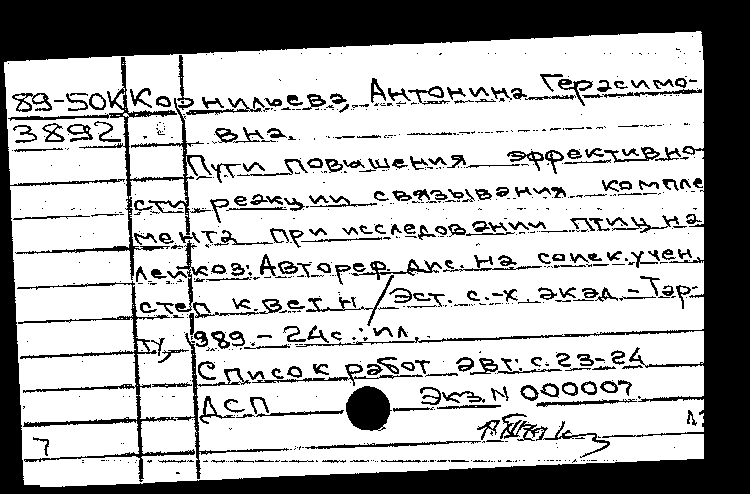 89-50К Корнильева, Антонина Герасимо-
3892 вна.
Пути повышения эффективно-
сти реакции связывания компле
мента при исследовании птиц на
лейкоз: Автореф. дис. на соиск. учен.
степ. к.вет.н / Эст. с.-х. акад. - Тар-
ту, 1989. - 24с.: ил.
Список работ авт. с. 23-24
ДСП Экз. N 000007
7